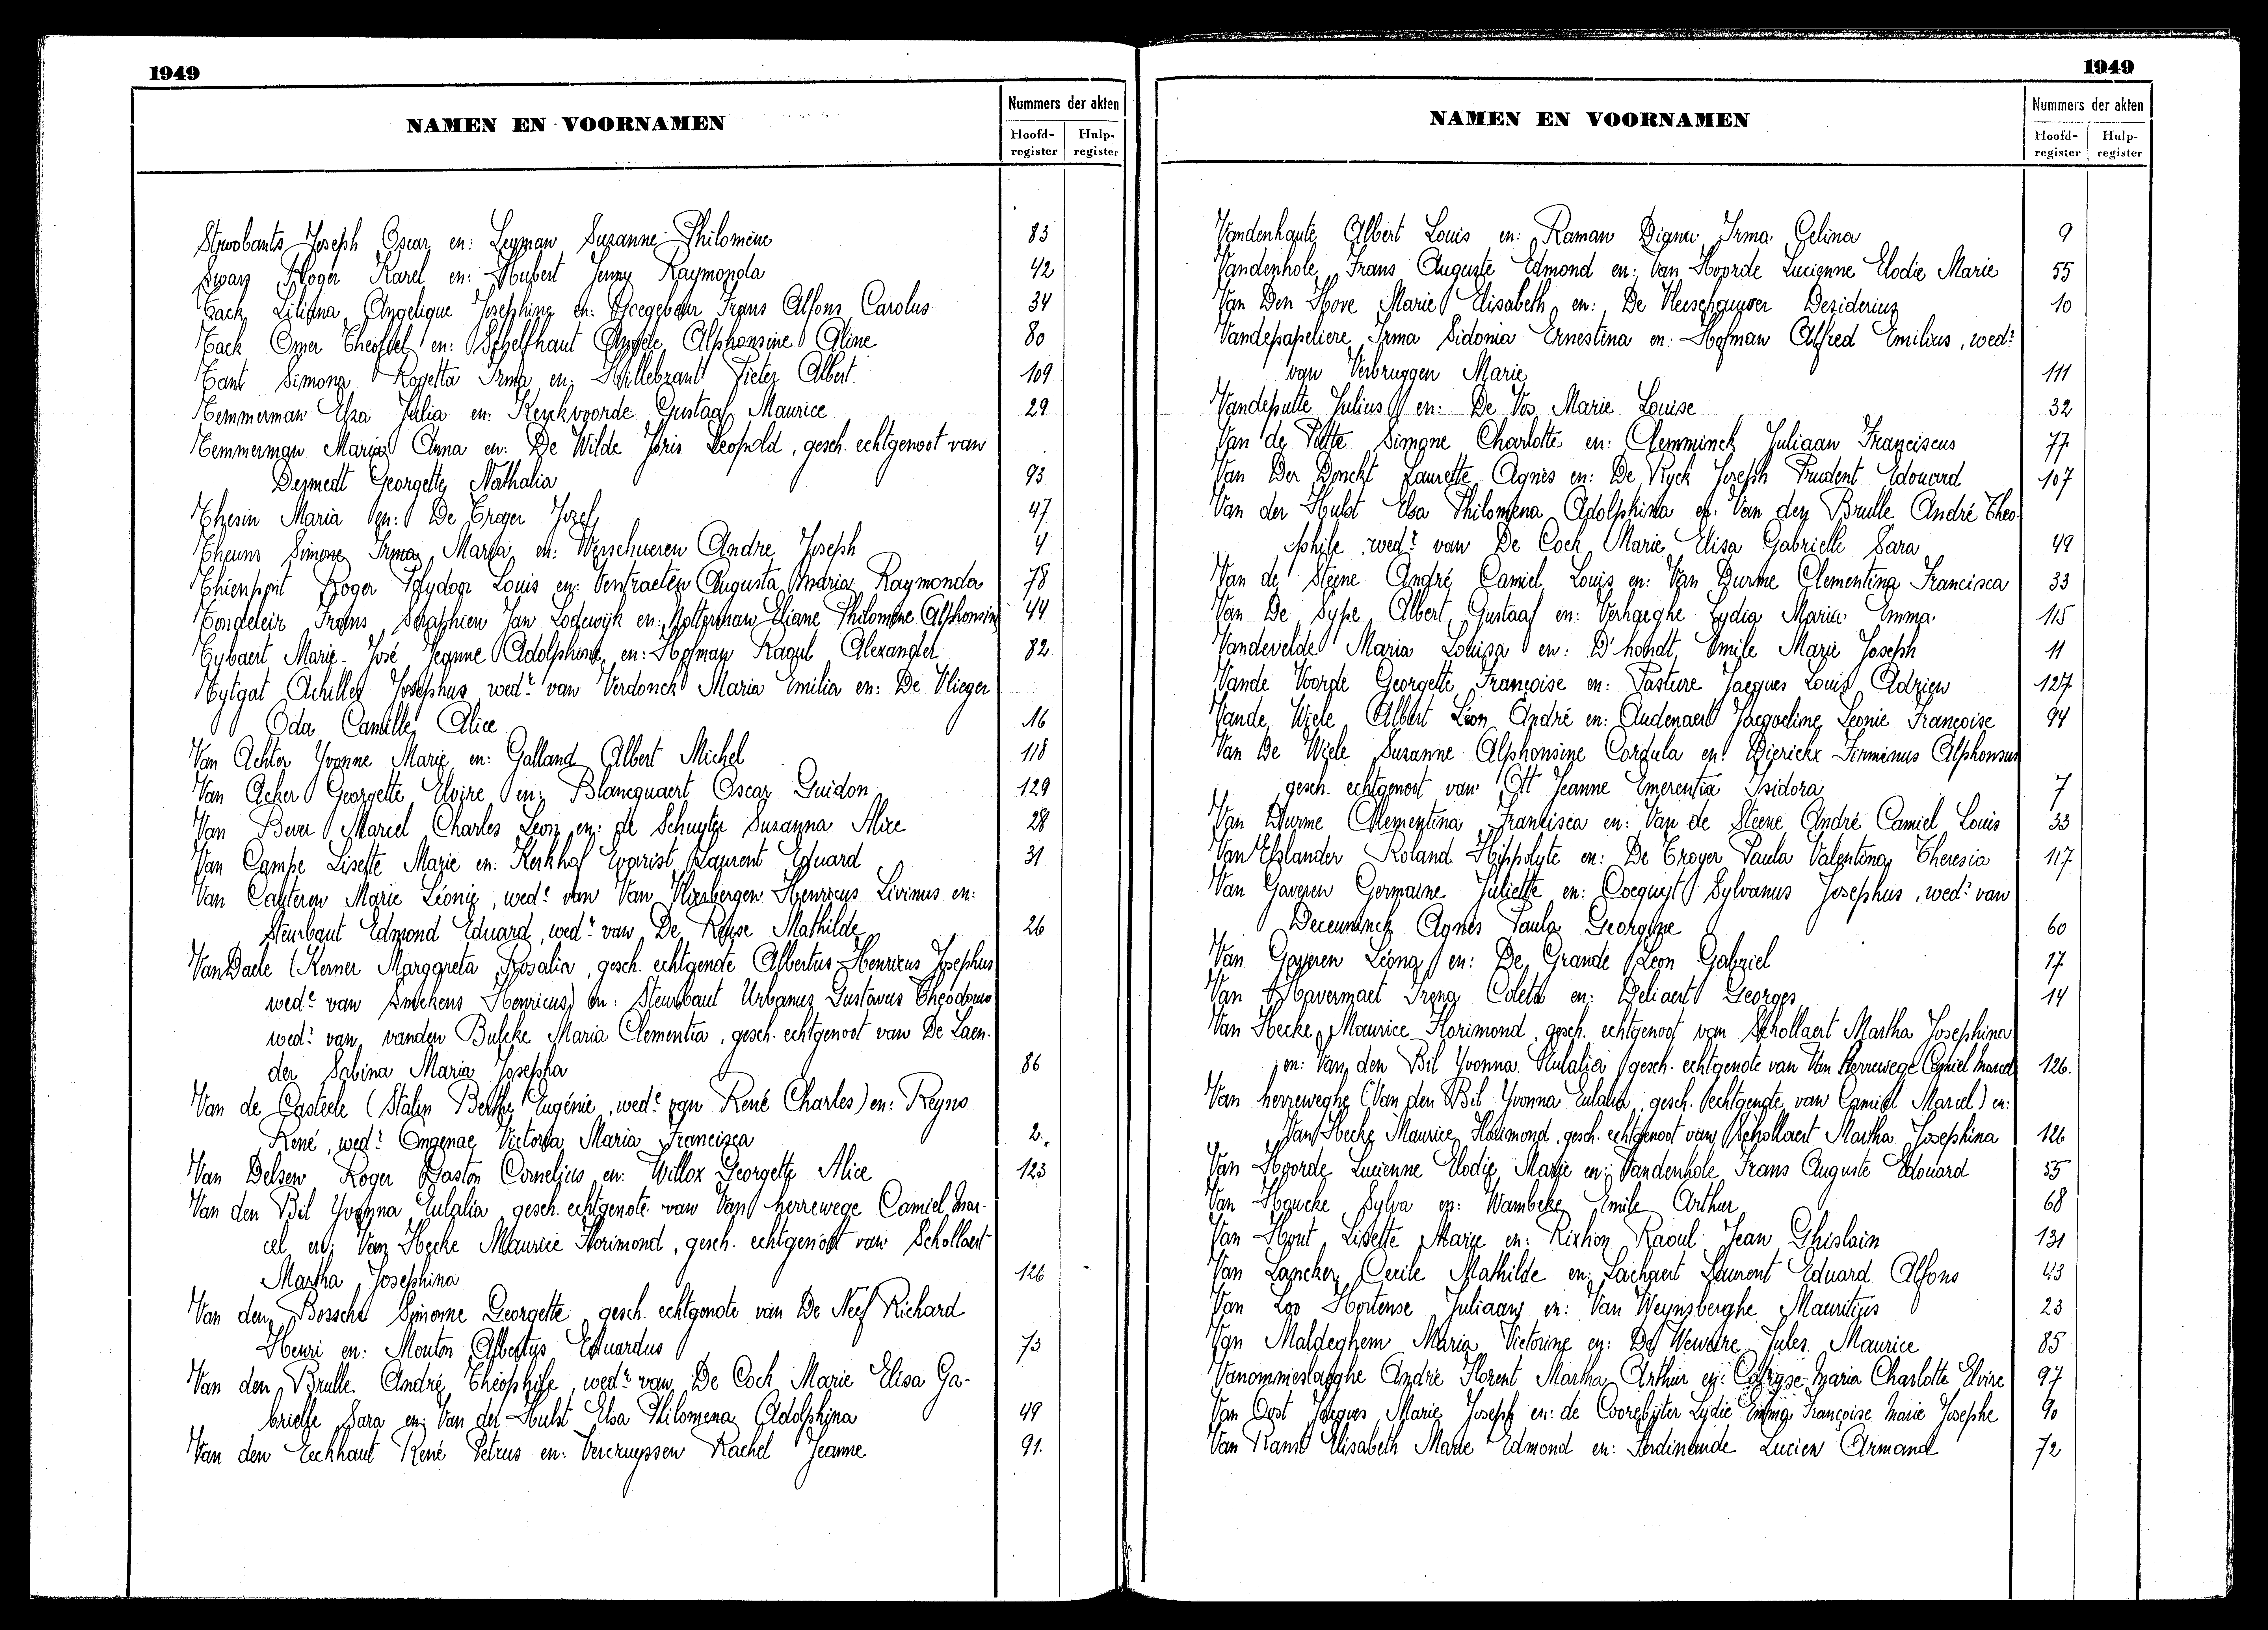 1949
NAMEN EN VOORNAMEN
Nummers der akten
Hoofd-register
Hulp-register
Strobants Joseph Oscar en: Leyman Suzanne Philomène 83
Roger Karel en: Hubert Jenny Raymonda 42
Tack Liliana Angelique Josephina en: Frans Alfons Carolus 34
Tack Omer Theofiel en: Schelfhaut Angèle Alphonsine Aline 80
Tant Simona Rogetta Irma en: Hillebrant Pieter Albert 109
Temmerman Elza Julia en: Kerckvoorde Gustaaf Maurice 29
Temmerman Maria Anna en: De Wilde Joris Leopold, gesch. echtgenoot van
Desmedt Georgette Nathalia 93
Thesin Maria en: De Troyer Jozef 47
Theuns Simone Irma Maria en: Verschueren Andre Joseph 4
Thienpont Roger Polydoor Louis en: Augusta Maria Raymonda 78
Frans Seraphien Jan Lodewijk en: Eliane Philomène Alphonsine 44
Tybaert Marie-José Jeanne Adolphine en: Hofman Raoul Alexander 82
Tytgat Achilles Josephus wedr van Verdonck Maria Emilia en: De Vlieger
Oda Camille Alice 16
Van Achter Yvonne Marie en: Galland Albert Michel 118
Van Acker Georgette Elvire en: Blancquaert Oscar Guidon 129
Van Bever Marcel Charles Leon en: de Schuyter Suzanna Alice 28
Van Campe Lisette Marie en: Kerkhof Evarist Laurent Eduard 31
Van Cauteren Marie Léonie, wede van Van Vliesbergen Henricus Livinus en:
Steurbaut Edmond Eduard, wedr van De Reyse Mathilde 26
VanDaele (Kerner Margareta Rosalia, gesch. echtgenote Albertus Henricus Josephus
wede van Smekens Henricus) en: Steurbaut Urbanus Gustavus Theodorus
wedr van vanden Bulcke Maria Clementia, gesch. echtgenoot van De Laen-
der Sabina Maria Josepha 86
Van de Casteele (Stalin Berthe Eugénie, wede van René Charles) en: Reyns
René, wedr Ongenae Victoria Maria Francisca 2.
Van Delsen Roger Gaston Cornelius en: Willox Georgette Alice 123
Van den Bil Yvonna Eulalia gesch. echtgenote van Van herrewege Camiel Mar-
cel en: Van Hecke Maurice Florimond, gesch. echtgenoot van Schollaert
Martha Josephina 126 -
Van den Bossche Simonne Georgette gesch. echtgenote van De Neef Richard
Henri en: Mouton Albertus Eduardus 73
Van den Brulle André Théophile wedr van De Cock Marie Elisa Ga-
brielle Sara en: Van der Hulst Elsa Philomena Adolphina 49
Van den Eeckhaut René Petrus en: Vercruyssen Rachel Jeanne 91.
1949
NAMEN EN VOORNAMEN
Nummers der akten
Hoofd-register
Hulp-register
Vandenhaute Albert Louis en: Raman Digna Irma Celina 9
Vandenhole Frans Auguste Edmond en: Van Hoorde Lucienne Elodie Marie 55
Van Den Hove Marie Elisabeth en: De Vleeschauwer Desiderius 10
Vandepapeliere Irma Sidonia Ernestina en: Hofman Alfred Emilius, wedr
van Verbruggen Marie 111
Vandeputte Julius en: De Vos Marie Louise 32
Van de Putte Simone Charlotte en: Clemminck Juliaan Franciscus 77
Van Der Donckt Laurette Agnès en: De Ryck Joseph Prudent Edouard 107
Van der Hulst Elsa Philomena Adolphina en: Van den Brulle André Théo-
phile wedr van De Cock Marie Elisa Gabrielle Sara 49
Van de Steene André Camiel Louis en: Van Durme Clementina Francisca 33
Van De Sype Albert Gustaaf en: Verhaeghe Lydia Maria Emma 115
Vandevelde Maria Louisa en: D'hondt Emile Marie Joseph 11
Vande Voorde Georgette Françoise en: Pasture Jacques Louis Adrien 127
Vande Wiele Albert Léon André en: Audenaert Jacqueline Leonie Françoise 94
Van De Wiele Suzanne Alphonsine Cordula en: Dierickx Firminus Alphonsus
gesch. echtgenoot van Ott Jeanne Emerentia Isidora 7
Van Durme Clementina Francisca en: Van de Steene André Camiel Louis 33
Van Elslander Roland Hippolyte en: De Troyer Paula Valentina Theresia 117
Van Gaveren Germaine Juliette en: Sylvanus Josephus, wedr van
Deceuninck Agnes Paula Georgine 60
Van Gaveren Léona en: De Grande Léon Gabriel 17
Van Havermaet Irena Coleta en: Beliaert Georges 14
Van Hecke Maurice Florimond, gesch. echtgenoot van Schollaert Martha Josephina
en: Van den Bil Yvonna Eulalia gesch. echtgenote van Van Herrewege Camiel Marcel 126.
Van herreweghe (Van den Bil Yvonna Eulalia, gesch. echtgenote van Camiel Marcel) en:
Van Hecke Maurice Florimond, gesch. echtgenoot van Schollaert Martha Josephina 126
Van Hoorde Lucienne Elodie Marie en: Vandenhole Frans Auguste Edouard 55
Van Houcke Sylva en: Wambeke Emile Arthur 68
Van Hout Lisette Marie en: Rixhon Raoul Jean Ghislain 131
Van Lancker Cecile Mathilde en: Lachaert Laurent Eduard Alfons 43
Van Loo Hortense Juliaan en: Van Weynsberghe Mauritius 23
Van Maldeghem Maria Victorine en: De Weweire Jules Maurice 85
Vanommeslaeghe André Florent Martha Arthur en: Maria Charlotte Elvire 97
Van Oost Jacques Marie Joseph en: de Coorebyter Lydie Emma Françoise Marie Josephe 90
Van Ranst Elisabeth Marie Edmond en: Ferdinande Lucien Armand 72